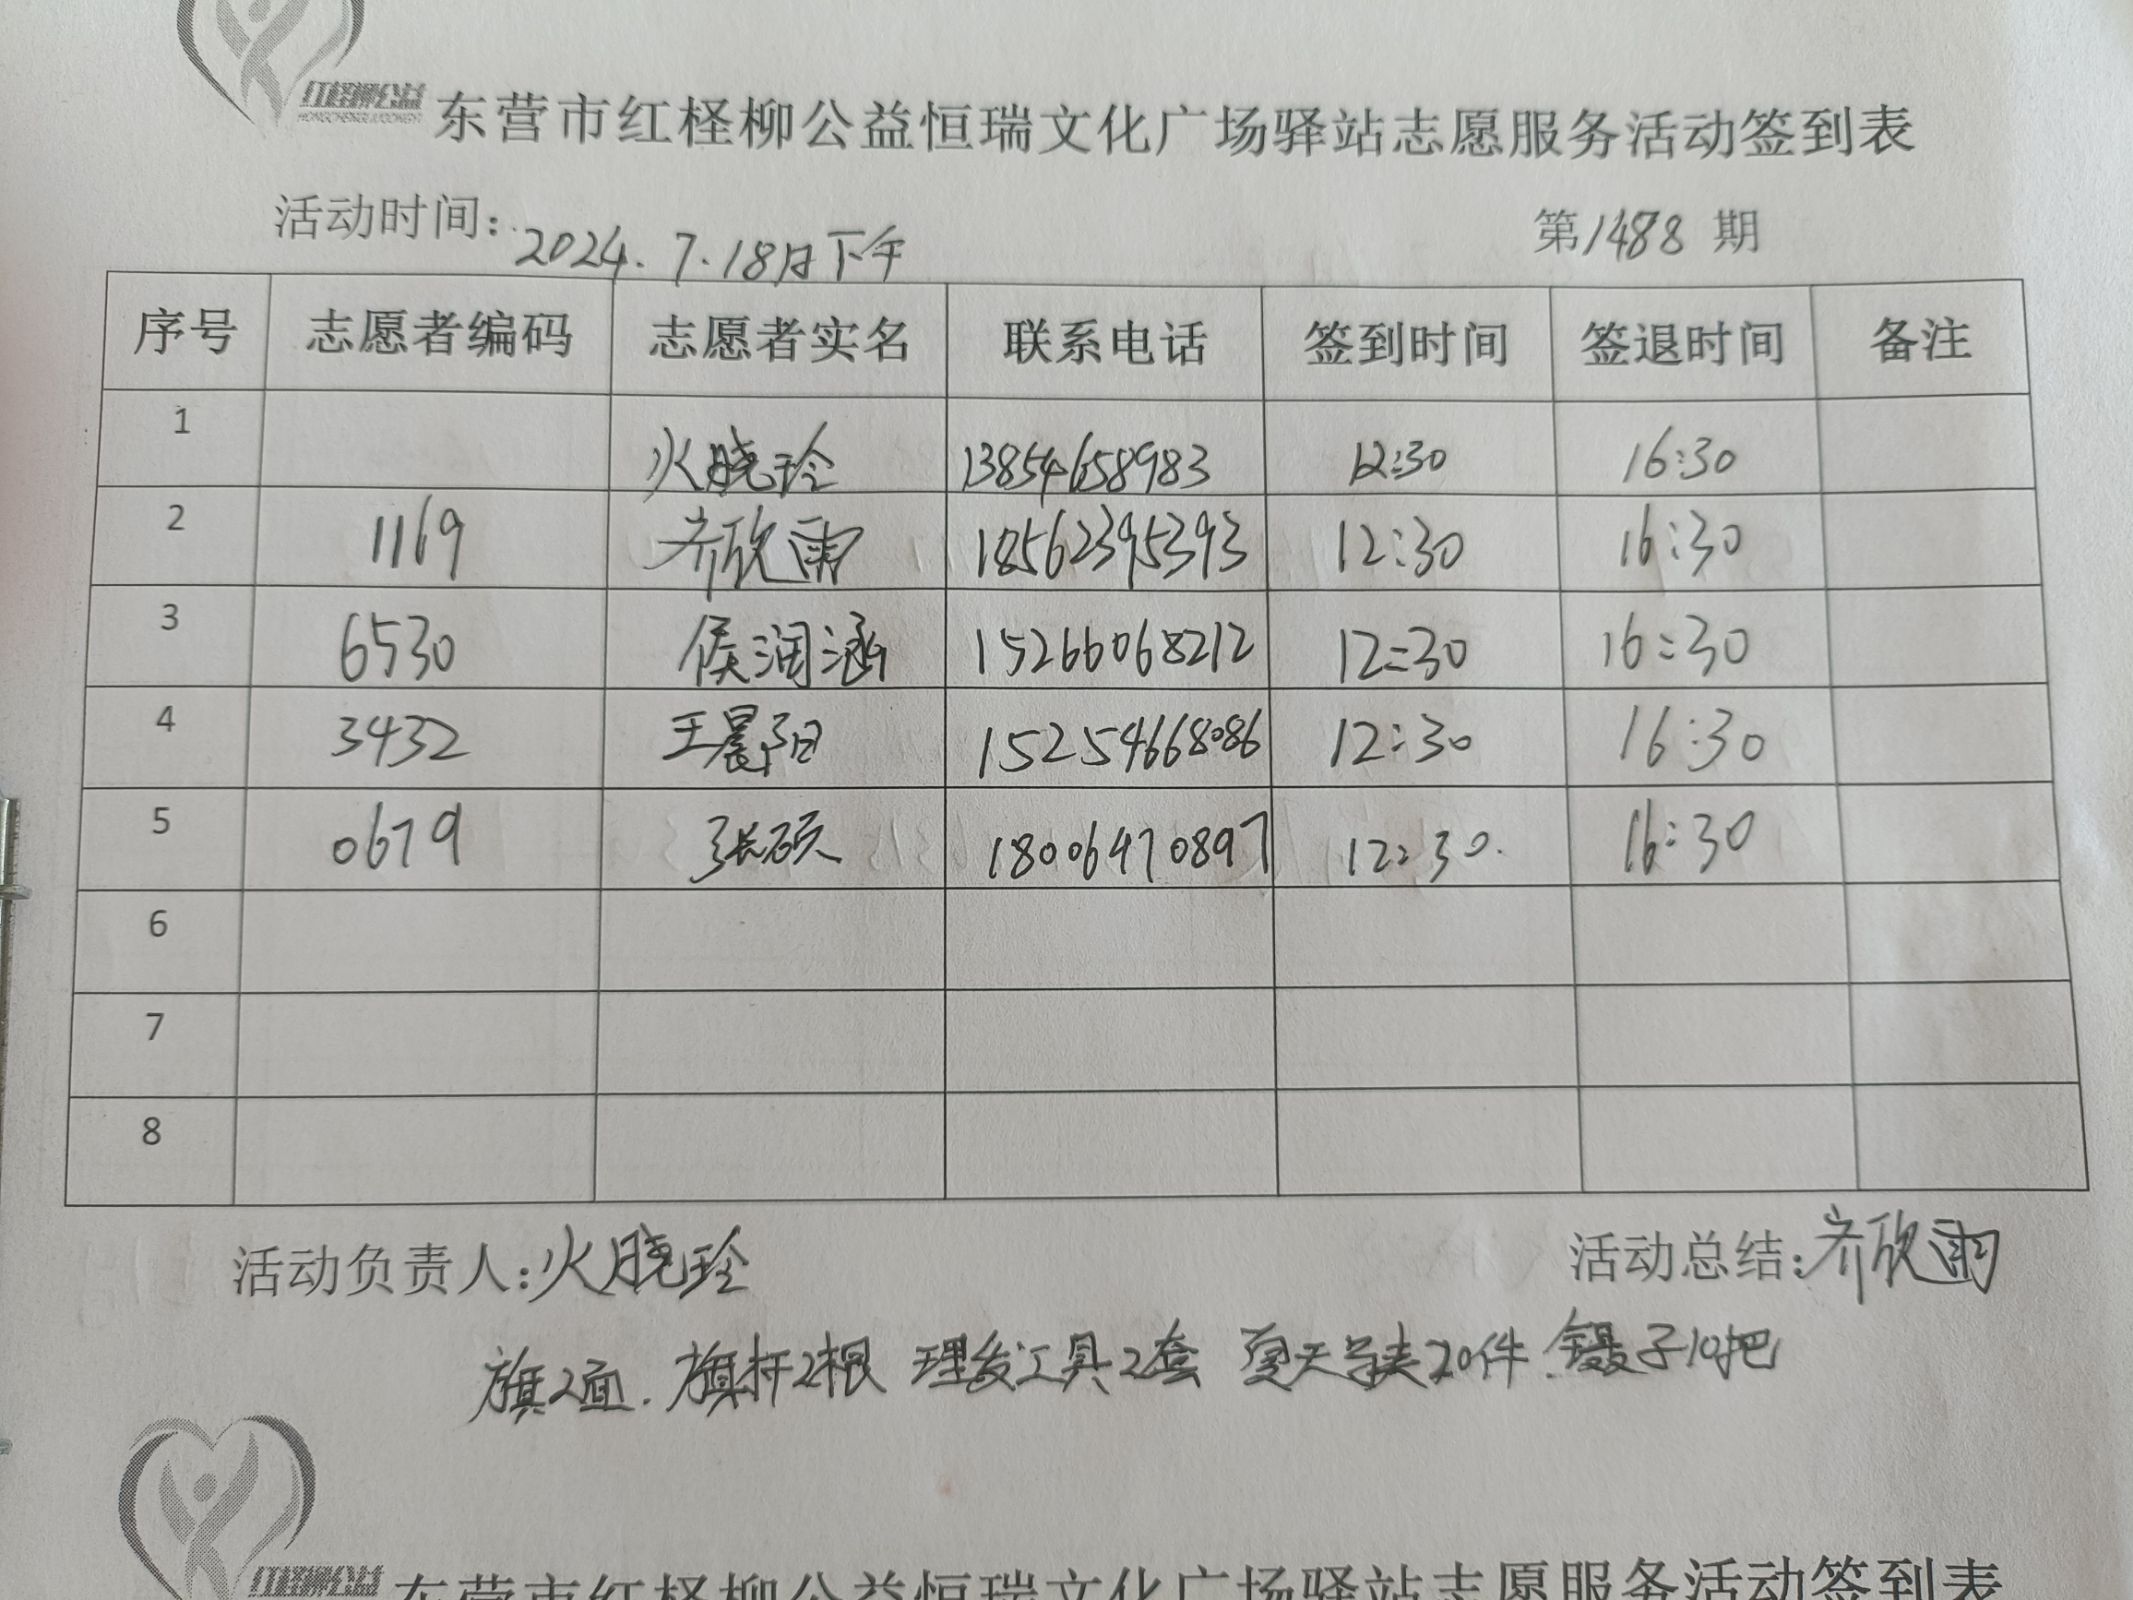 红柽柳公益
HONGCHENGLIUGONGYI
东营市红柽柳公益恒瑞文化广场驿站志愿服务活动签到表
活动时间: 2024.7.18日下午 第1488期
序号 志愿者编码 志愿者实名 联系电话 签到时间 签退时间 备注
1 火晓玲 13854658983 12:30 16:30
2 1169 齐欣雨 18562395393 12:30 16:30
3 6530 侯润涵 15266068212 12:30 16:30
4 3432 王晨阳 15254668086 12:30 16:30
5 0679 张硕 18006470897 12:30. 16:30
6
7
8
活动负责人: 火晓玲 活动总结: 齐欣雨
旗2面. 旗杆2根 理发工具2套 夏天马夹20件. 镊子10把
红柽柳公益
东营市红柽柳公益恒瑞文化广场驿站志愿服务活动签到表